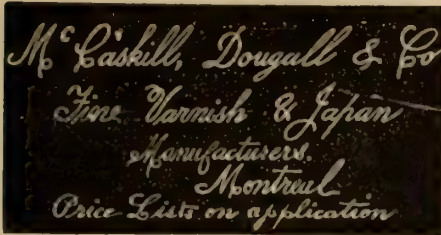 McCaskill, Dougall & Co
Fine Varnish & Japan
Manufacturers.
Montreal
Price Lists on application